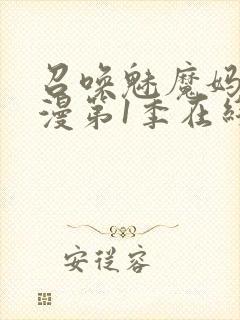 召唤魅魔妈
漫第1季在
安従容